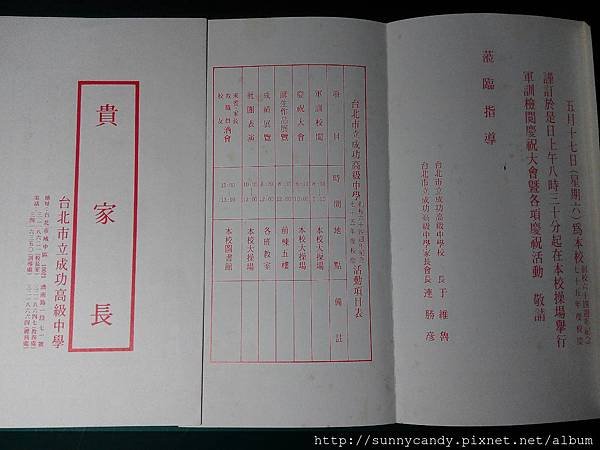 五月十七日(星期六)為本校
謹訂於是日上午八時三十分起在本校操場舉行
軍訓檢閱慶祝大會暨各項慶祝活動 敬請
蒞臨指導
台北市立成功高級中學校長于維魯
台北市立成功高級中學家長會長連勝彥
台北市立成功高級中學
活動項目表
項目 時間 地點 備註
軍訓校閱 本校大操場
慶祝大會 本校大操場
師生作品展覽 前棟五樓
成績展覽 各班教室
社團表演 本校大操場
來賓家長教職員校友酒會 本校圖書館
貴家長
台北市立成功高級中學
http://sunnycandy.pixnet.net/album